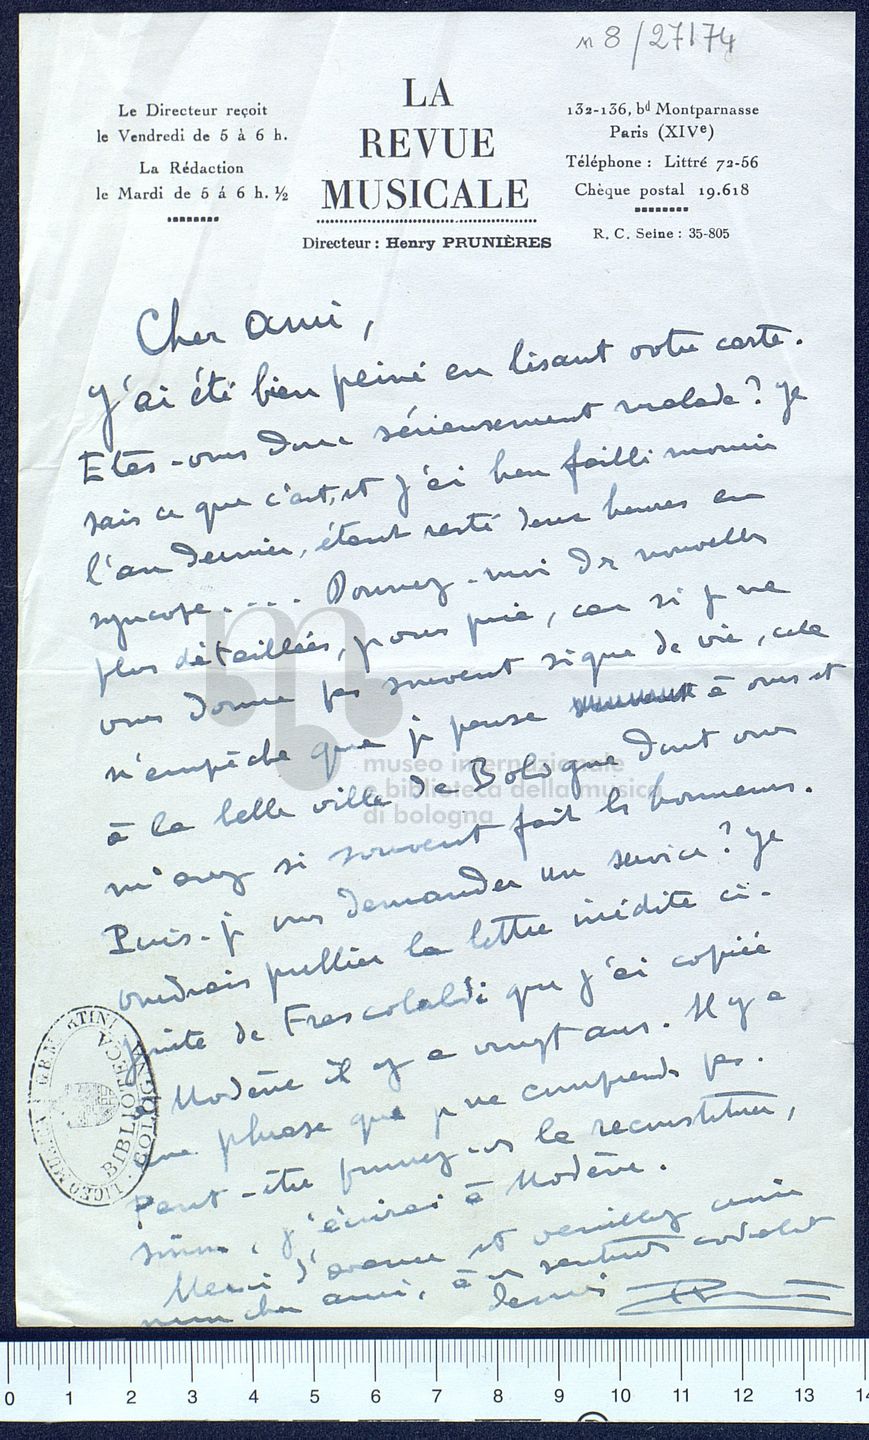 n 8/27174
Le Directeur reçoit
le Vendredi de 5 à 6 h.
La Rédaction
le Mardi de 5 á 6 h. ½
LA
REVUE
MUSICALE
Directeur : Henry PRUNIÈRES
132-136, bd Montparnasse
Paris (XIVe)
Téléphone : Littré 72-56
Chèque postal 19.618
R. C. Seine : 35-805
Cher ami,
J'ai été bien peiné en lisant votre carte.
Etes-vous donc sérieusement malade ? Je
sais ce que c'est, et j'ai bien failli mourir
l'an dernier, étant resté deux heures en
syncope.... Donnez-moi de nouvelles
plus détaillées, je vous prie, car si je ne
vous donne pas souvent signe de vie, cela
n'empêche que je pense à vous et
à la belle ville de Bologne dont vous
m'avez si souvent fait les honneurs.
Puis-je vous demander un service ? Je
voudrais publier la lettre inédite ci-
jointe de Frescobaldi que j'ai copiée
Modène il y a vingt ans. Il y a
une phrase que je ne comprends pas.
Peut-être pourrez-vous la reconstituer,
sinon, j'écrirai à Modène.
Merci d'avance et veuillez croire
mon cher ami, à sentiments cordialement
museo internazionale
e biblioteca della musica
di bologna
LICEO MUSICALE G.B. MARTINI
BIBLIOTECA
BOLOGNA
0 1 2 3 4 5 6 7 8 9 10 11 12 13 14